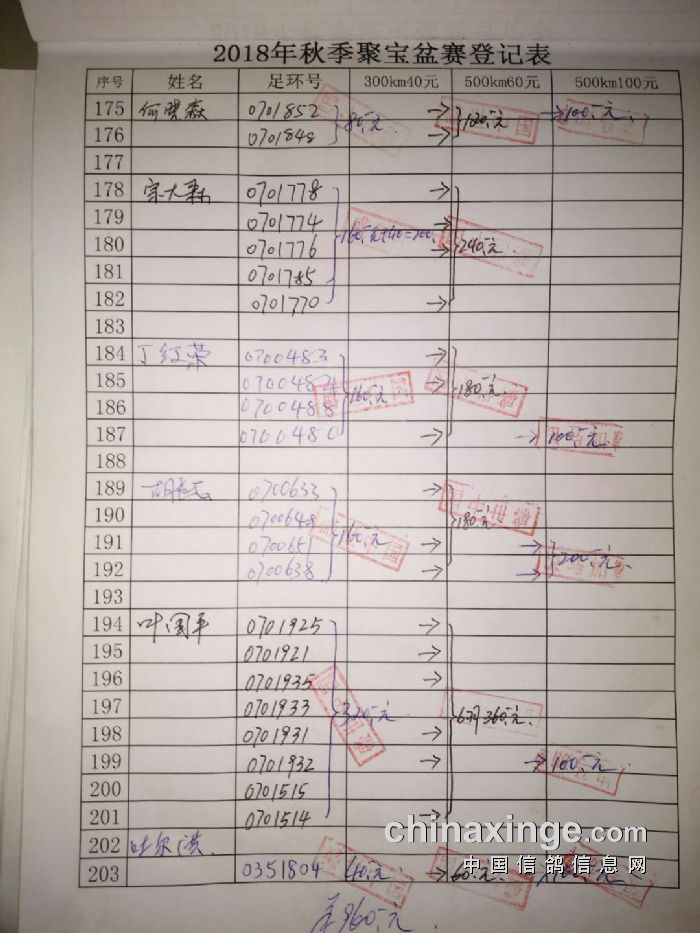 2018年秋季聚宝盆赛登记表
序号 姓名 足环号 300km40元 500km60元 500km100元
175 何 森 0701852 80元 → 120元 → 100元
176 0701848 →
177
178 宗大 0701778 →
179 0701774 →
180 0701776 160元+40=200 → 240元
181 0701785
182 0701770 →
183
184 丁红荣 0700483 →
185 0700484 160元 → 180元
186 0700488
187 0700480 → → 100元
188
189 胡 0700633 →
190 0700648 180元
191 070065 160元 → →
192 0700638 → → 200元
193
194 叶国平 0701925 →
195 0701921
196 0701935 →
197 0701933 320元 360元
198 0701931 →
199 0701932 → → 100元
200 0701515
201 0701514 →
202 吐尔洪
203 0351804 40元 → 60元
chinaxinge.com
中国信鸽信息网
960元